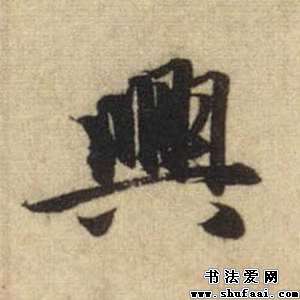 興
书法爱网
www.shufaai.com